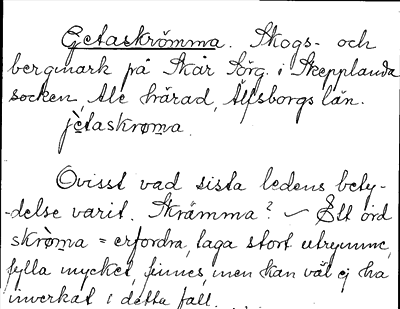 Getaskrömma. Skogs- och
bergmark på Skår Sörg. i Skepplanda
socken, Ale härad, Älfsborgs län.
jètaskroma.
Ovisst vad sista ledens bety-
-delse varit. Skrämma? – Ett ord
skròma = erfordra, taga stort utrymme,
fylla mycket, finnes, men kan väl ej ha
inverkat i detta fall.